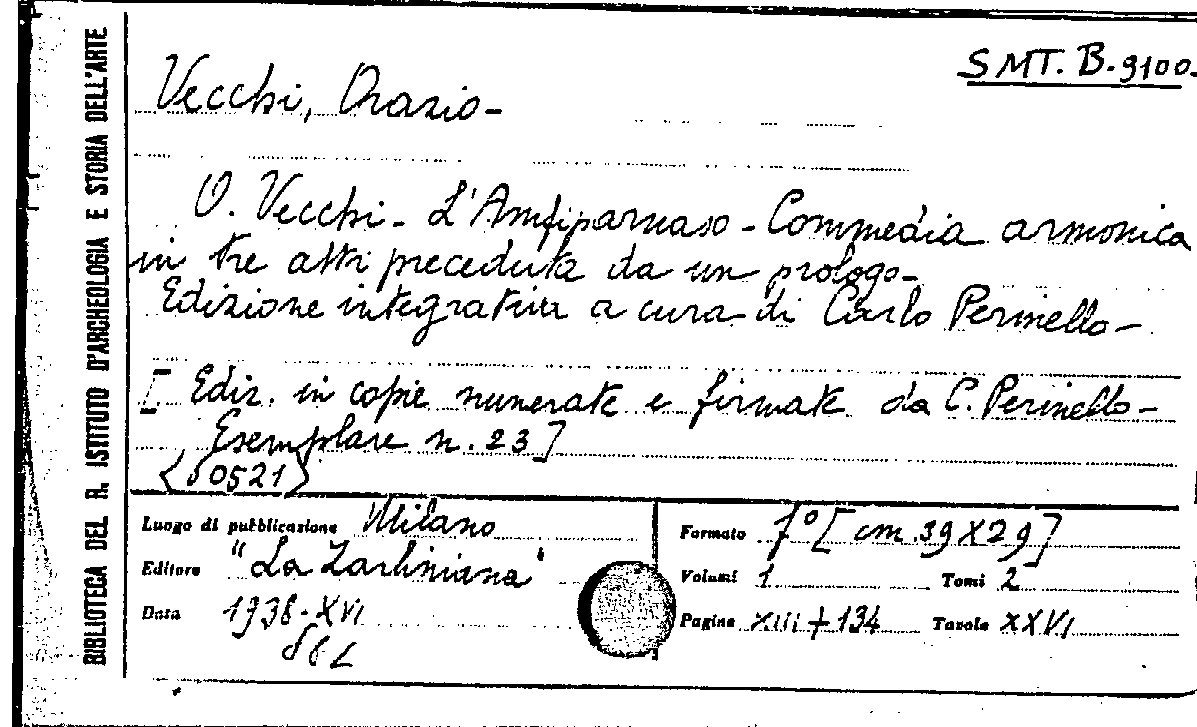 BIBLIOTECA DEL R. ISTITUTO D'ARCHEOLOGIA E STORIA DELL'ARTE
SMT. B. 9100.
Vecchi, Orazio -
O. Vecchi - L'Amfiparnaso - Commedia armonica
in tre atti preceduta da un prologo -
Edizione integrativa a cura di Carlo Perinello -
[Ediz. in copie numerate e firmate da C. Perinello -
Esemplare n. 23]
Luogo di pubblicazione Milano
Editore "La Zarliniana"
Data 1938-XVI
Formato [cm. 39 X 29]
Volumi 1 Tomi 2
Pagine XIII + 134 Tavole XXVI